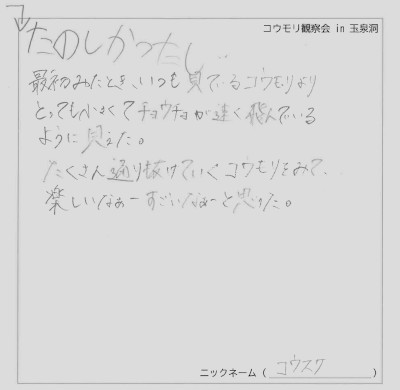 コウモリ観察会 in 玉泉洞
たのしかったし
最初みたとき、いつも見ているコウモリより
とっても小さくてチョウチョが速く飛んでいる
ように見えた。
たくさん通り抜けていくコウモリをみて、
楽しいなぁーすごいなぁーと思った。
ニックネーム（コウスケ）